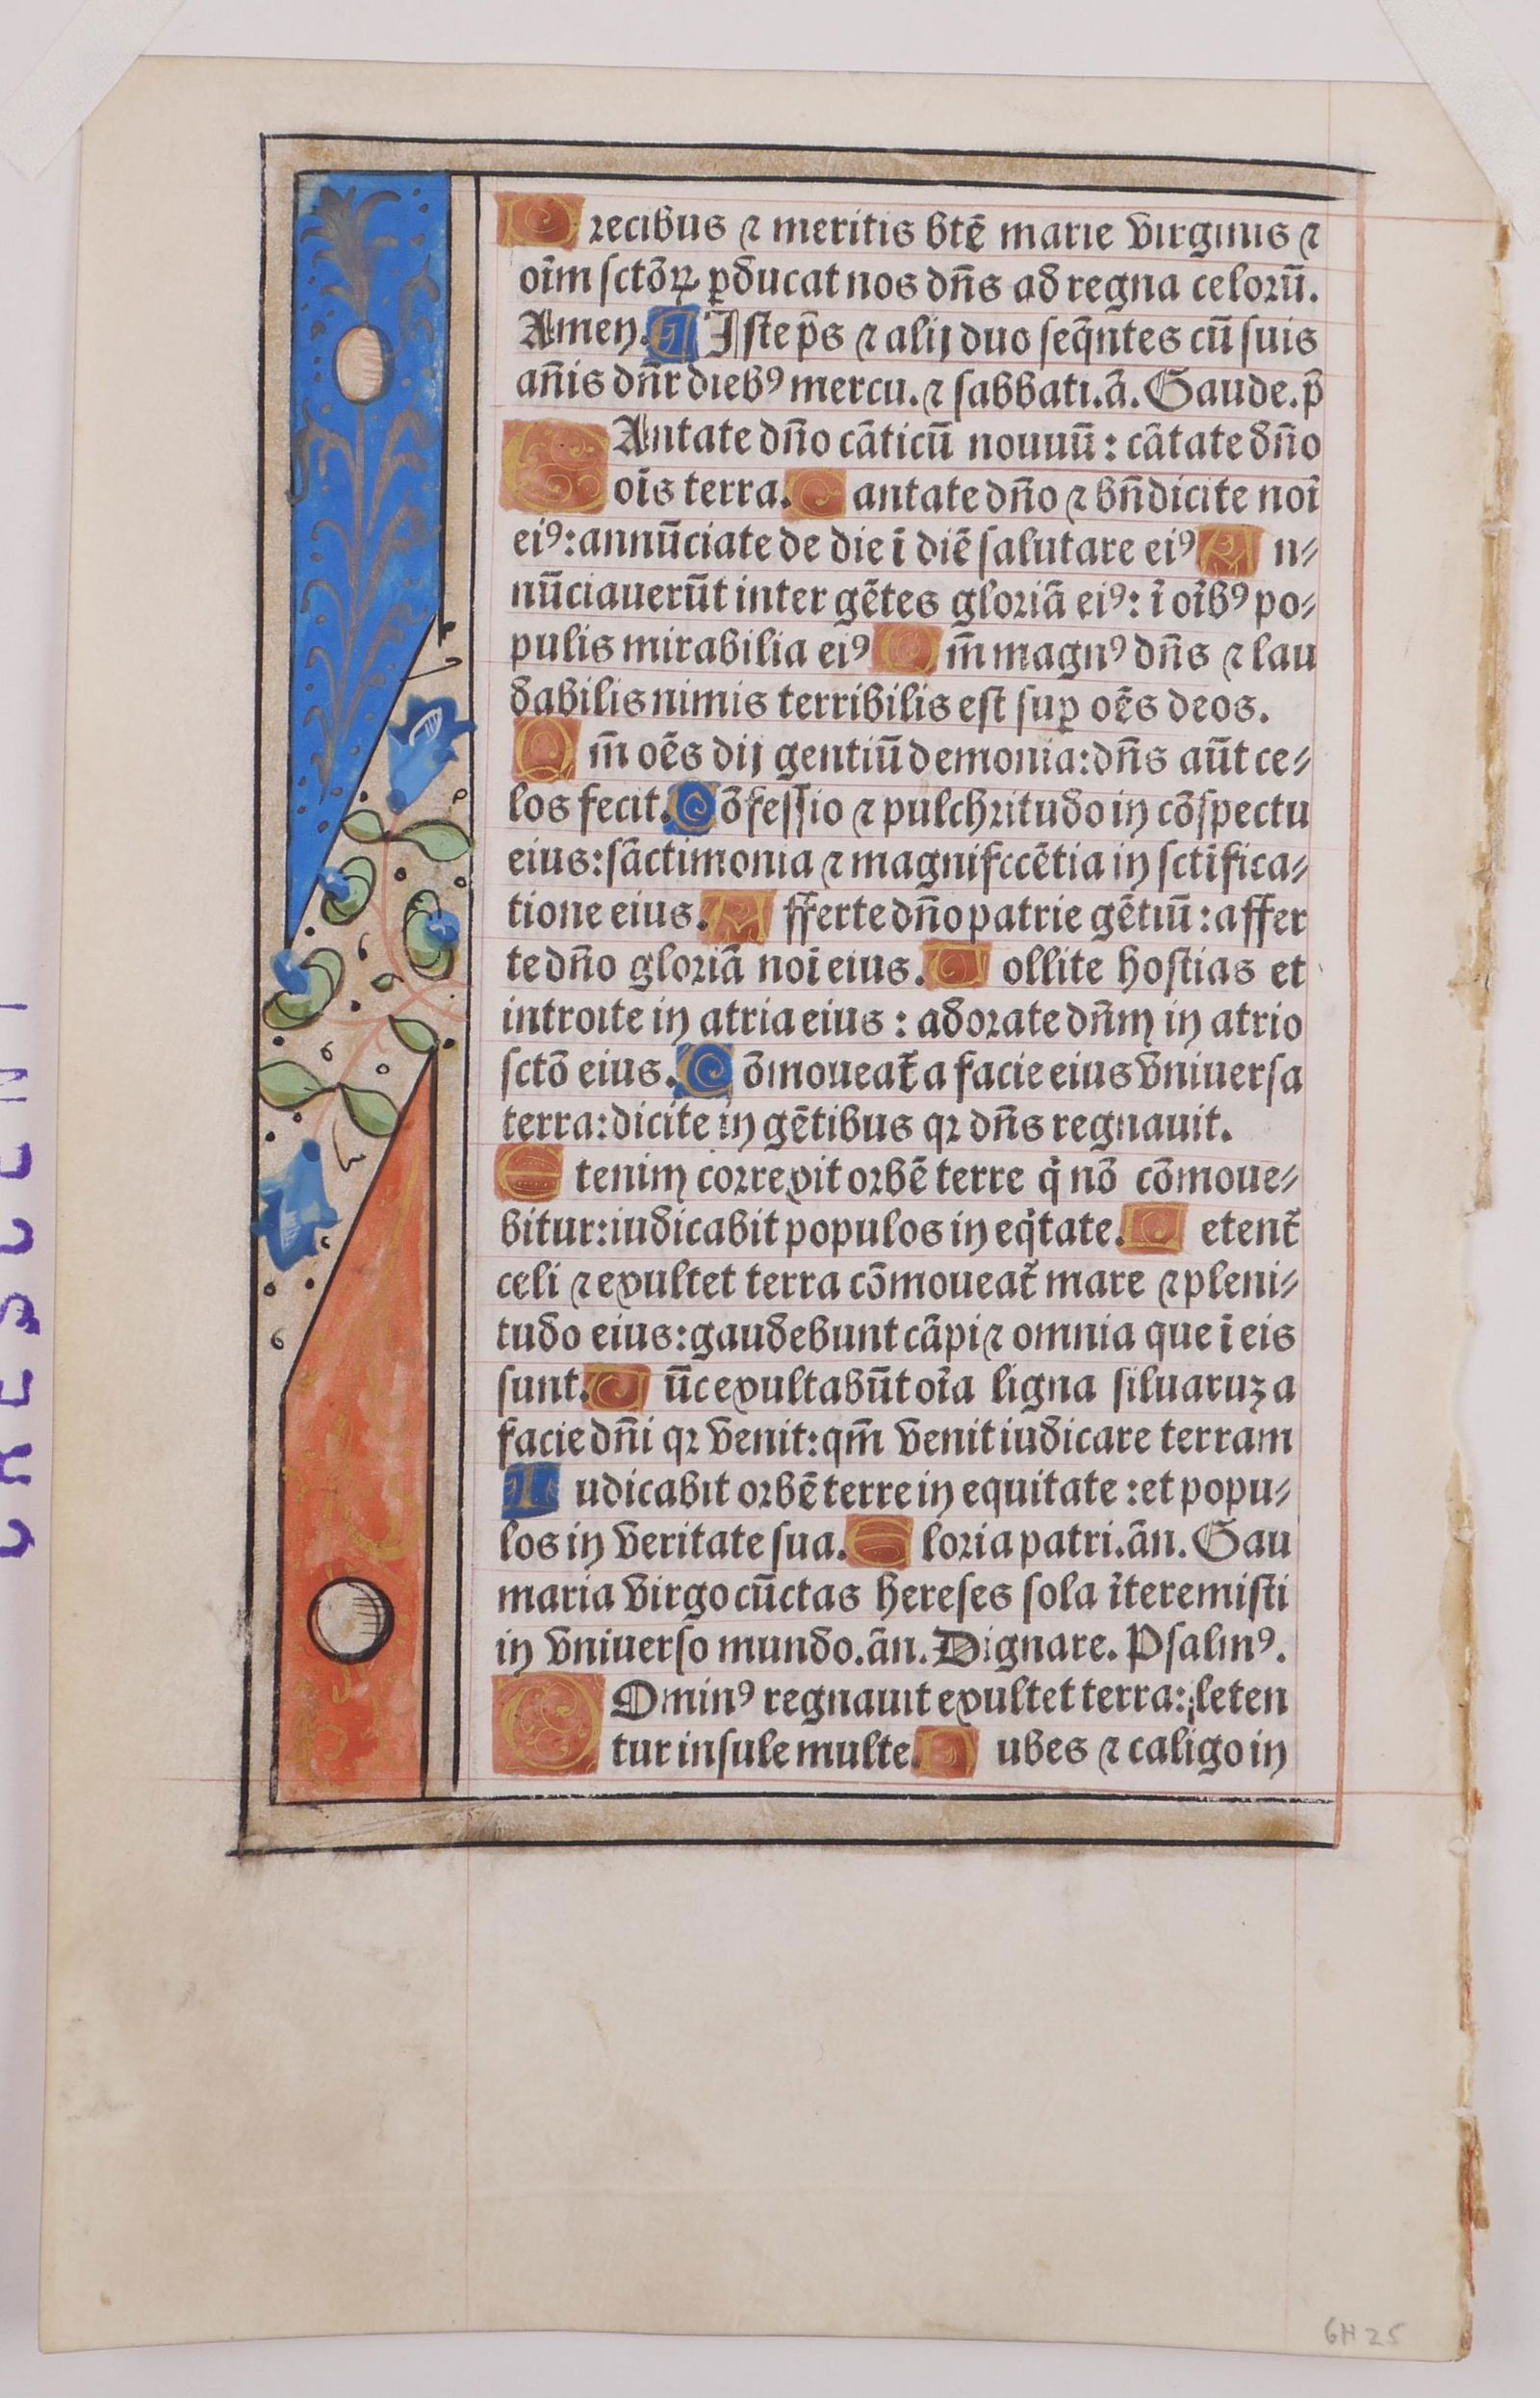 Precibus ⁊ meritis btē marie virginis ⁊
oīm sctōꝝ ꝑducat nos dn̄s ad regna celorū.
Amen. ¶ Iste p̄s ⁊ alij duo seq̄ntes cū suis
an̄is dn̄r diebꝰ mercu. ⁊ sabbati. ā. Gaude. p̄
CAntate dn̄o cāticū nouuū: cātate dn̄o
oīs terra. Cantate dn̄o ⁊ bn̄dicite noī
eiꝰ: annūciate de die ī diē salutare eiꝰ An⸗
nūciauerūt inter gētes gloriā eiꝰ: ī oībꝰ po⸗
pulis mirabilia eiꝰ Qm̄ magnꝰ dn̄s ⁊ lau
dabilis nimis terribilis est suꝑ oēs deos.
Qm̄ oēs dij gentiū demonia: dn̄s aūt ce⸗
los fecit. Cōfessio ⁊ pulchritudo in cōspectu
eius: sāctimonia ⁊ magnifccētia in sctīfica⸗
tione eius. Afferte dn̄o patrie gētiū: affer
te dn̄o gloriā noī eius. Tollite hostias et
introite in atria eius: adorate dn̄m in atrio
sctō eius. Cōmoueat̄ a facie eius vniuersa
terra: dicite in gētibus qꝛ dn̄s regnauit.
Etenim correxit orbē terre q̇ nō cōmoue⸗
bitur: iudicabit populos in eq̇tate. Letent̄
celi ⁊ exultet terra cōmoueat̄ mare ⁊ pleni⸗
tudo eius: gaudebunt cāpi ⁊ omnia que ī eis
sunt. Tūc exultabūt oīa ligna siluaruꝫ a
facie dn̄i qꝛ venit: qm̄ venit iudicare terram
Iudicabit orbē terre in equitate: et popu⸗
los in veritate sua. Gloria patri. ān. Gau
maria virgo cūctas hereses sola īteremisti
in vniuerso mundo. ān. Dignare. Psalmꝰ.
DOminꝰ regnauit exultet terra: leten
tur insule multe. Nubes ⁊ caligo in
6H25